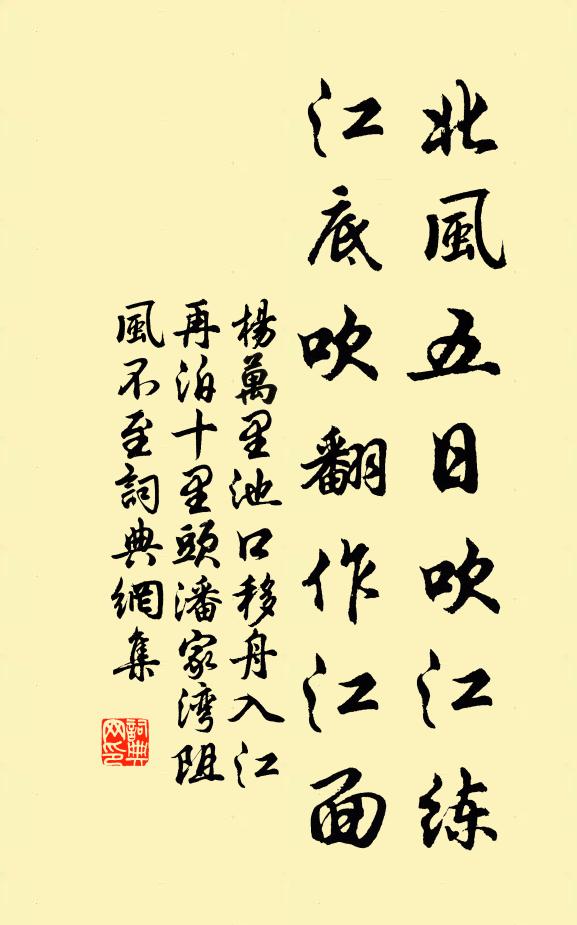 北風五日吹江练
江底吹翻作江面
楊萬里池口移舟入江
再泊十里頭潘家湾阻
風不至詞典網集
詞典网印